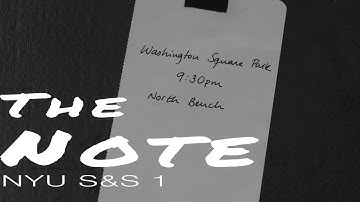 Washington Square Park
9:30pm
North Bench
The
Note
NYU S&S 1